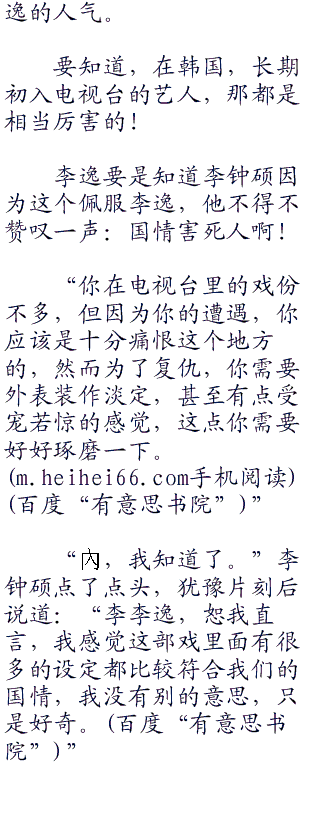 逸的人气。
要知道，在韩国，长期
初入电视台的艺人，那都是
相当厉害的！
李逸要是知道李钟硕因
为这个佩服李逸，他不得不
赞叹一声：国情害死人啊！
“你在电视台里的戏份
不多，但因为你的遭遇，你
应该是十分痛恨这个地方
的，然而为了复仇，你需要
外表装作淡定，甚至有点受
宠若惊的感觉，这点你需要
好好琢磨一下。
(m.heihei66.com手机阅读)
(百度“有意思书院”)”
“內，我知道了。”李
钟硕点了点头，犹豫片刻后
说道：“李李逸，恕我直
言，我感觉这部戏里面有很
多的设定都比较符合我们的
国情，我没有别的意思，只
是好奇。(百度“有意思书
院”)”